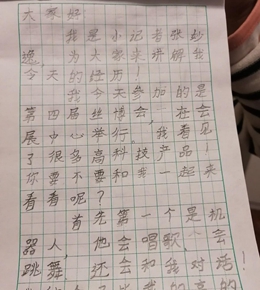 大家好
我是小记者张妙
逸，为大家来讲解我
今天的经历！
我今天参加的是
第四届丝博会，在会
展中心举行，我看见
了很多高科技产品！
你要不要和我一起来
看看呢？
首先第一个是机
器人，他会唱歌，会
跳舞，还会和我对话！